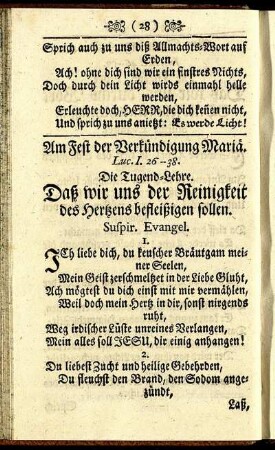 (28)
Sprich auch zu uns diß Allmachts-Wort auf
Erden,
Ach! ohne dich sind wir ein finstres Nichts,
Doch durch dein Licht wirds einmahl helle
werden,
Erleuchte doch, HERR, die dich keñen nicht,
Und sprich zu uns anietzt: Es werde Licht!
Am Fest der Verkündigung Mariä.
Luc. I. 26-38.
Die Tugend-Lehre.
Daß wir uns der Reinigkeit
des Hertzens befleißigen sollen.
Suspir. Evangel.
1.
ICh liebe dich, du keuscher Bräutgam mei-
ner Seelen,
Mein Geist zerschmeltzet in der Liebe Gluht,
Ach mögtest du dich einst mit mir vermählen,
Weil doch mein Hertz in dir, sonst nirgends
ruht,
Weg irdischer Lüste unreines Verlangen,
Mein alles soll JESU, dir einig anhangen!
2.
Du liebest Zucht und heilige Gebehrden,
Du fleuchst den Brand, den Sodom ange-
zündt,
Laß,